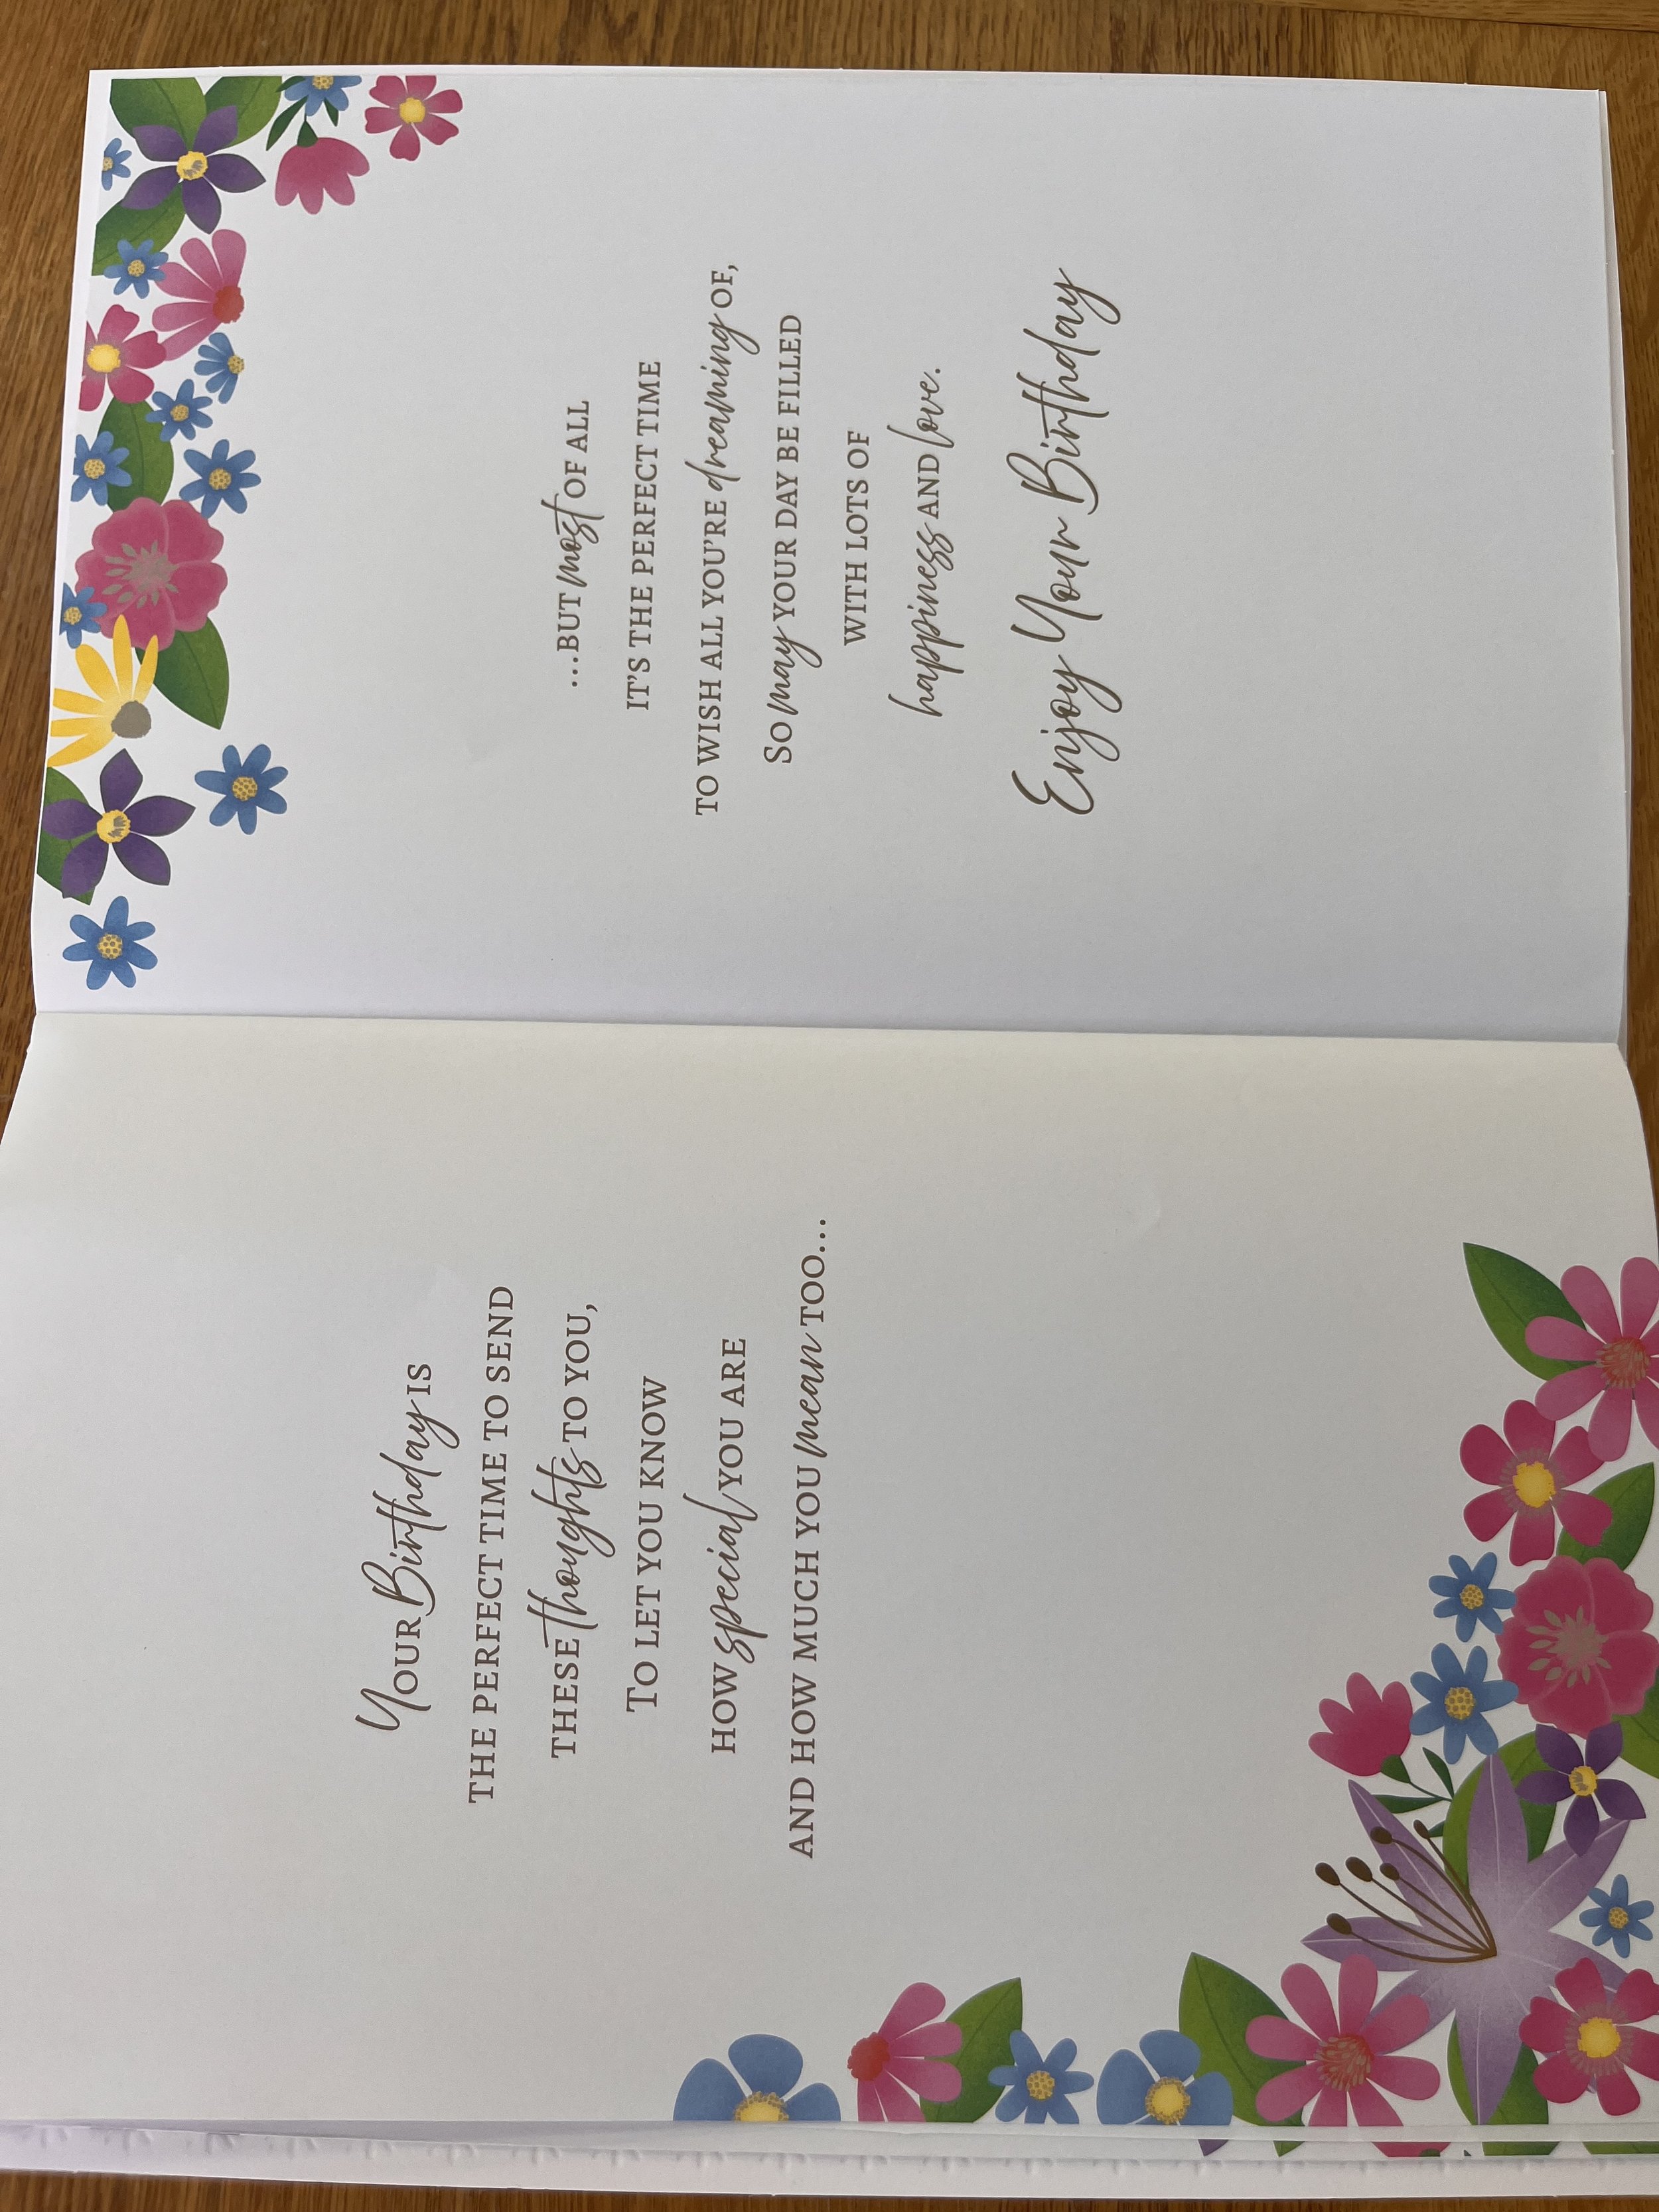 Your Birthday IS
THE PERFECT TIME TO SEND
THESE thoughts TO YOU,
TO LET YOU KNOW
HOW special YOU ARE
AND HOW MUCH YOU mean TOO...
...BUT most OF ALL
IT'S THE PERFECT TIME
TO WISH ALL YOU'RE dreaming OF,
SO may YOUR DAY BE FILLED
WITH LOTS OF
happiness AND love.
Enjoy Your Birthday